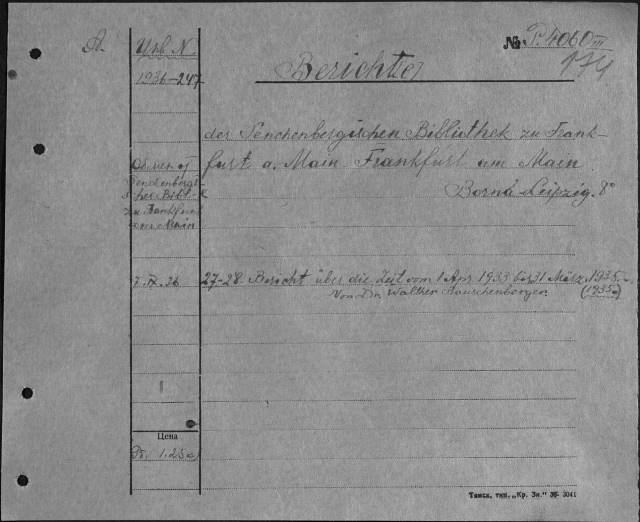 A. Инв N. № P. 4060 III
174
1936-247
Berichte
der Senckenbergischen Bibliothek zu Frank-
furt a. Main. Frankfurt am Main
Borna-Leipzig. 8°
Обмен от
Senckenbergi-
schen Bibl-k
zu Frankfurt
am Main
7.IX.36
27-28. Bericht über die Zeit vom 1 Apr. 1933 bis 31 März 1935.
Von Dr. Walther Rauschenberger. (1935.)
Цена
1.25
Тамск. тип. „Кр. Зн." 36- 3041